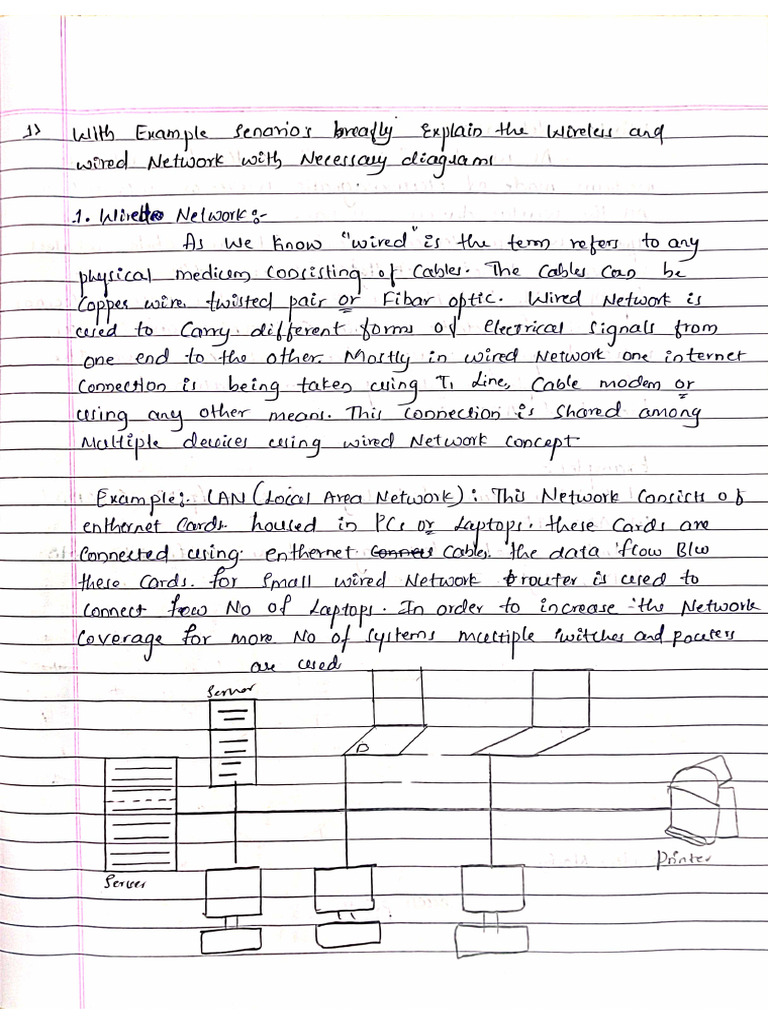 1) With Example Senario's breafly Explain the Wireless and
wired Network with Necessary diagrams
1. Wired Network:-
As we know "wired" is the term refers to any
physical medium consisting of cables. The cables can be
copper wire, twisted pair or Fibar optic. Wired Network is
used to carry different forms of electrical signals from
one end to the other. Mostly in wired Network one internet
connection is being taken using T1 Line, cable modem or
using any other means. This connection is shared among
multiple devices using wired Network concept
Example:- LAN (Local Area Network): This Network consists of
enthernet cards housed in PCs or Laptops. these cards are
connected using enthernet cable. the data flow Blw
these cards. for small wired Network router is used to
connect few No of Laptops. In order to increase the Network
coverage for more No of systems multiple switches and routers
are used
Server
Printer
Server